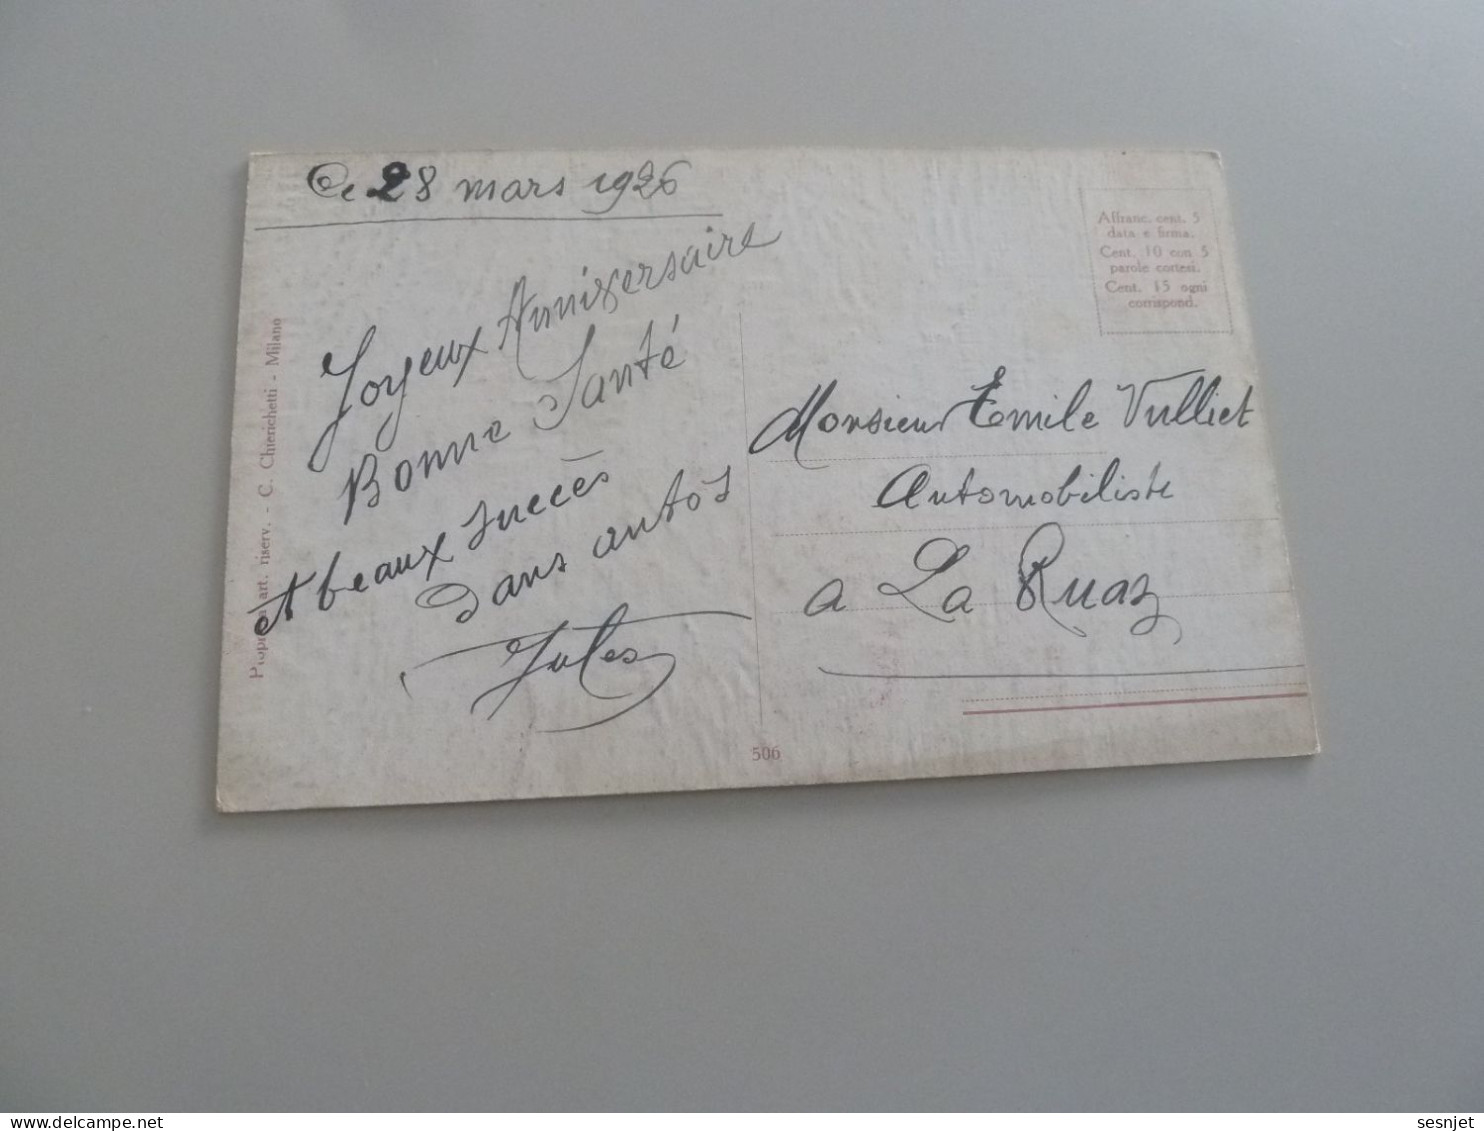 Ce 28 mars 1926
Joyeux Anniversaire
Bonne Santé
et beaux succès
dans autos
Jules
Affranc. cent. 5
data e firma.
Cent. 10 con 5
parole cortesi.
Cent. 15 ogni
corrispond.
Monsieur Emile Vulliet
Automobiliste
a La Ruaz
art. riserv. - C. Chierichetti - Milano
506
delcampe.net
sesnjet